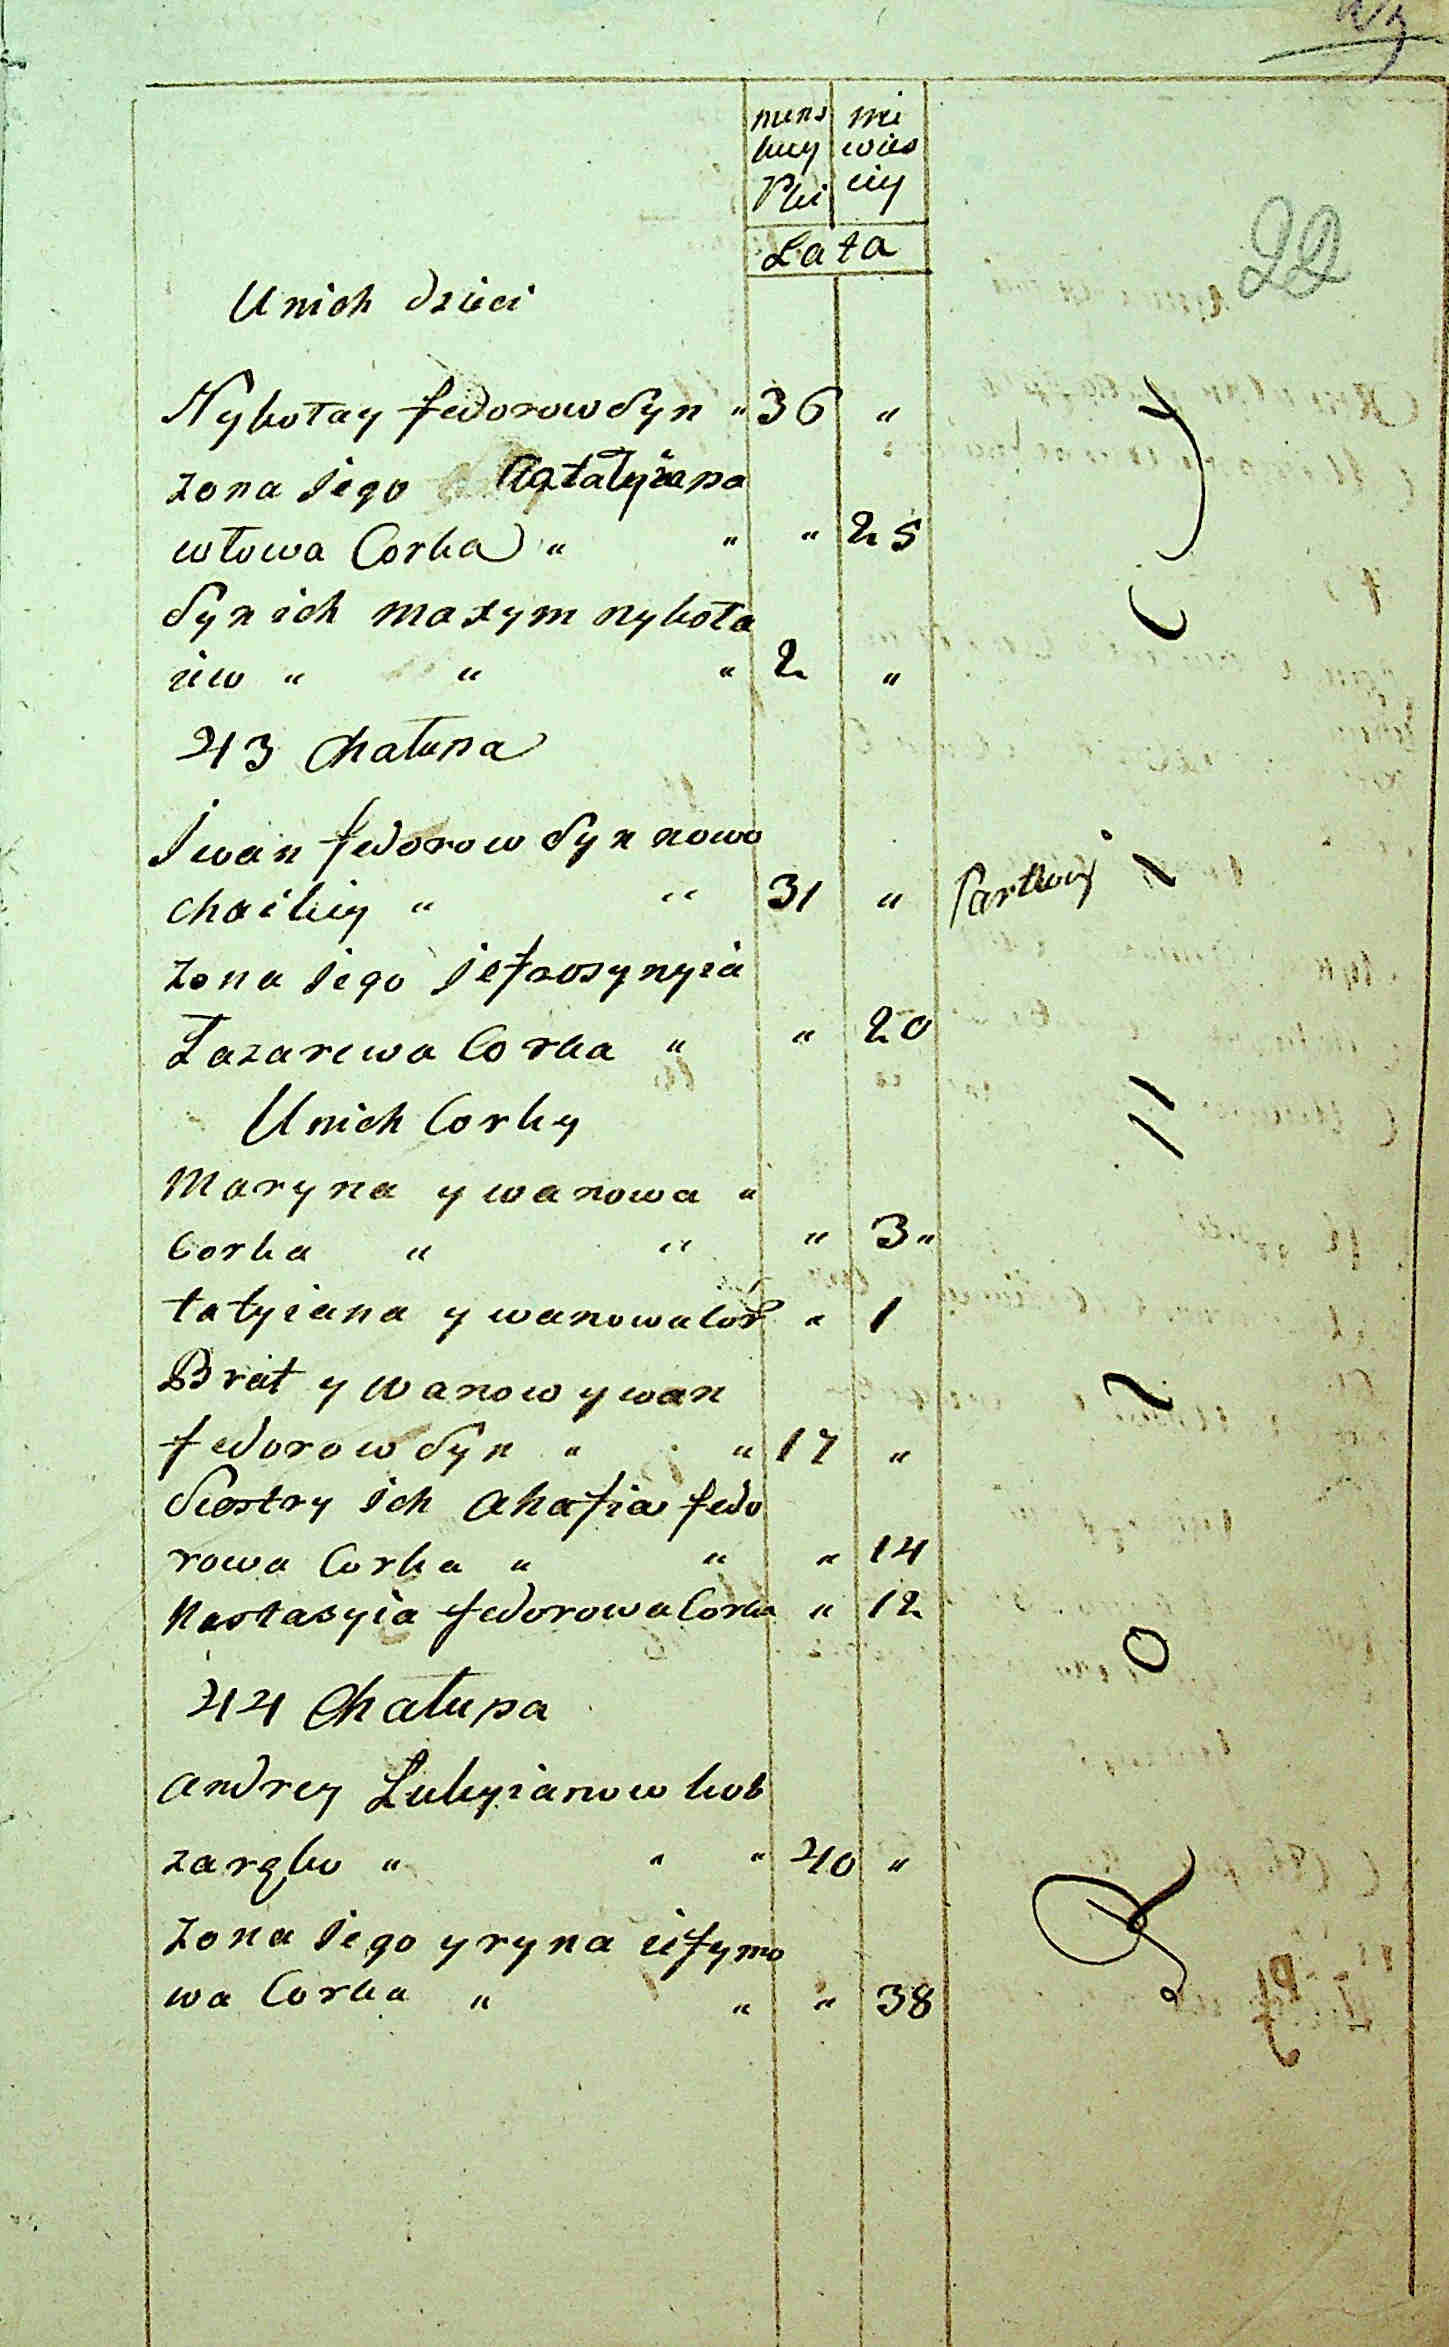 mens mi
kiey wias
Płci ciy
Lata
22
Unich dzieci
Nykołay fedorow Syn " 36 "
zona iego Natałyia pa
włowa Corka " " " 25
Syn ich maxym nykoła
iew " " " 2 "
43 Chałupa
Iwan fedorow Syn nowo
chaikiy " " 31 "
zona iego iefrosynyia
Łazarewa Corka " " 20
Unich Corky
Maryna ywanowa "
Corka " " " 3 "
tatyiana ywanowa Cor " 1
Brat ywanow ywan
fedorow Syn " " 17 "
Siostry ich Ahafia fedo
rowa Corka " " " 14
Nastasyia fedorowa Corka " 12
44 Chałupa
Andrey Łukyianow kob
zarẹko " " " 40 "
zona iego yryna iefymo
wa Corka " " " 38